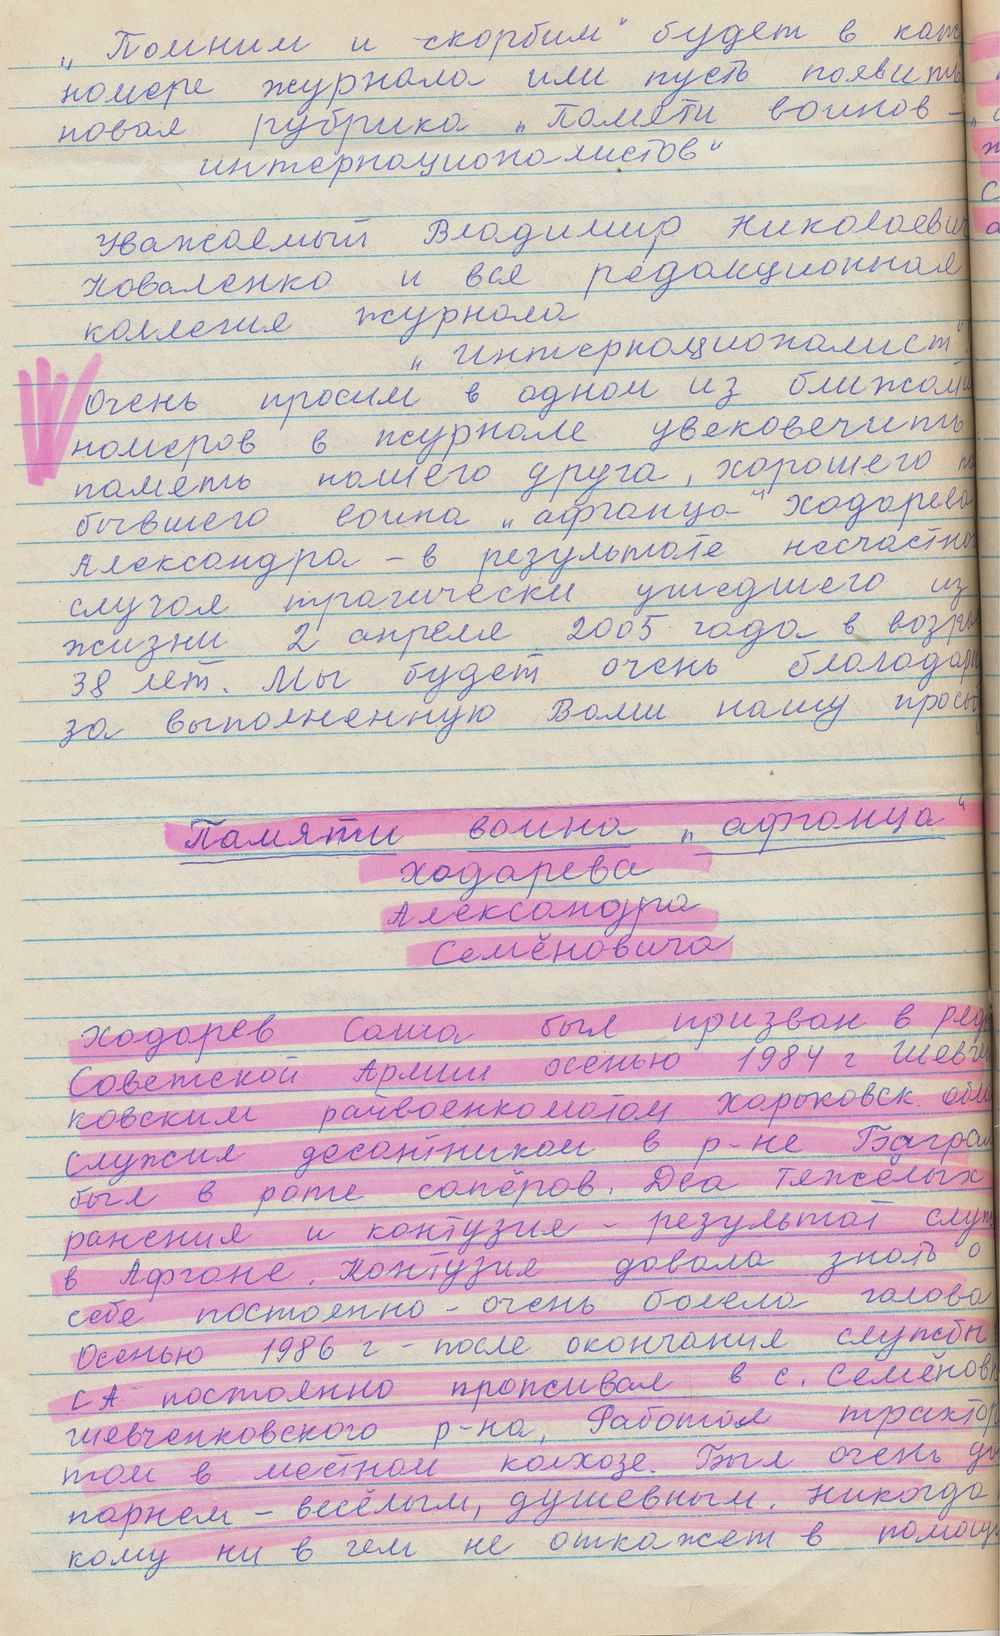 „Помним и скорбим“ будет в каж
номере журнала или пусть появить
новая рубрика „Памяти воинов –
интернационалистов“
Уважаемый Владимир Николаевич
Коваленко и вся редакционная
коллегия журнала
„Интернационалист“.
Очень просим в одном из ближай
номеров в журнале увековечить
память нашего друга, хорошего
бывшего воина „афганца“ Ходарева
Александра – в результате несчастно
случая трагически ушедшего из
жизни 2 апреля 2005 года в возра
38 лет. Мы будет очень благодар
за выполненную Вами нашу прось
Памяти воина „афганца“
Ходарева
Александра
Семёновича
Ходарев Саша был призван в ряд
Советской Армии осенью 1984 г Шевчен
ковским райвоенкоматом Харьковск. обл
Служил десантником в р-не Баграм
был в роте сапёров. Два тяжёлых
ранения и контузия – результат служ
в Афгане. Контузия давала знать о
себе постоянно – очень болела голова
Осенью 1986 г – после окончания службы
СА постоянно проживал в с. Семёновк
Шевченковского р-на, Работал трактор
том в местном колхозе. Был очень
парнем – весёлым, душевным. Никогда
кому ни в чем не откажет в помощи